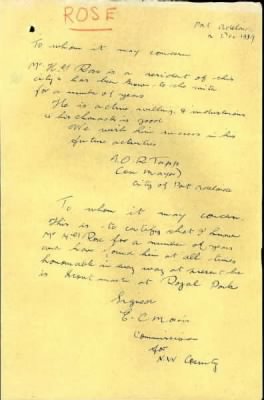 ROSE
Port Adelaide
To whom it may concern
Mr H. W. Rose is a resident of this
city & has been known to the writer
for a number of years
He is active willing & industrious
& his character is good
We wish him success in his
future activities
(Mayor)
City of Port Adelaide
To whom it may concern.
This is to certify that I know
Mr H W Rose for a number of years
and have found him at all times
honourable in every way at present he
is at Royal Park
Signed
E. C.
Commissioner
for
N.W County